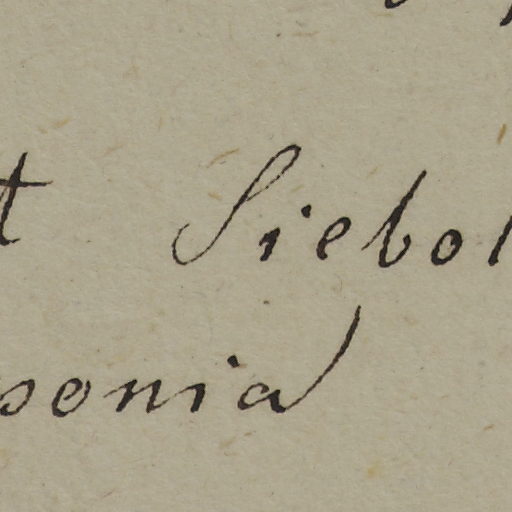 t Siebol
ponia